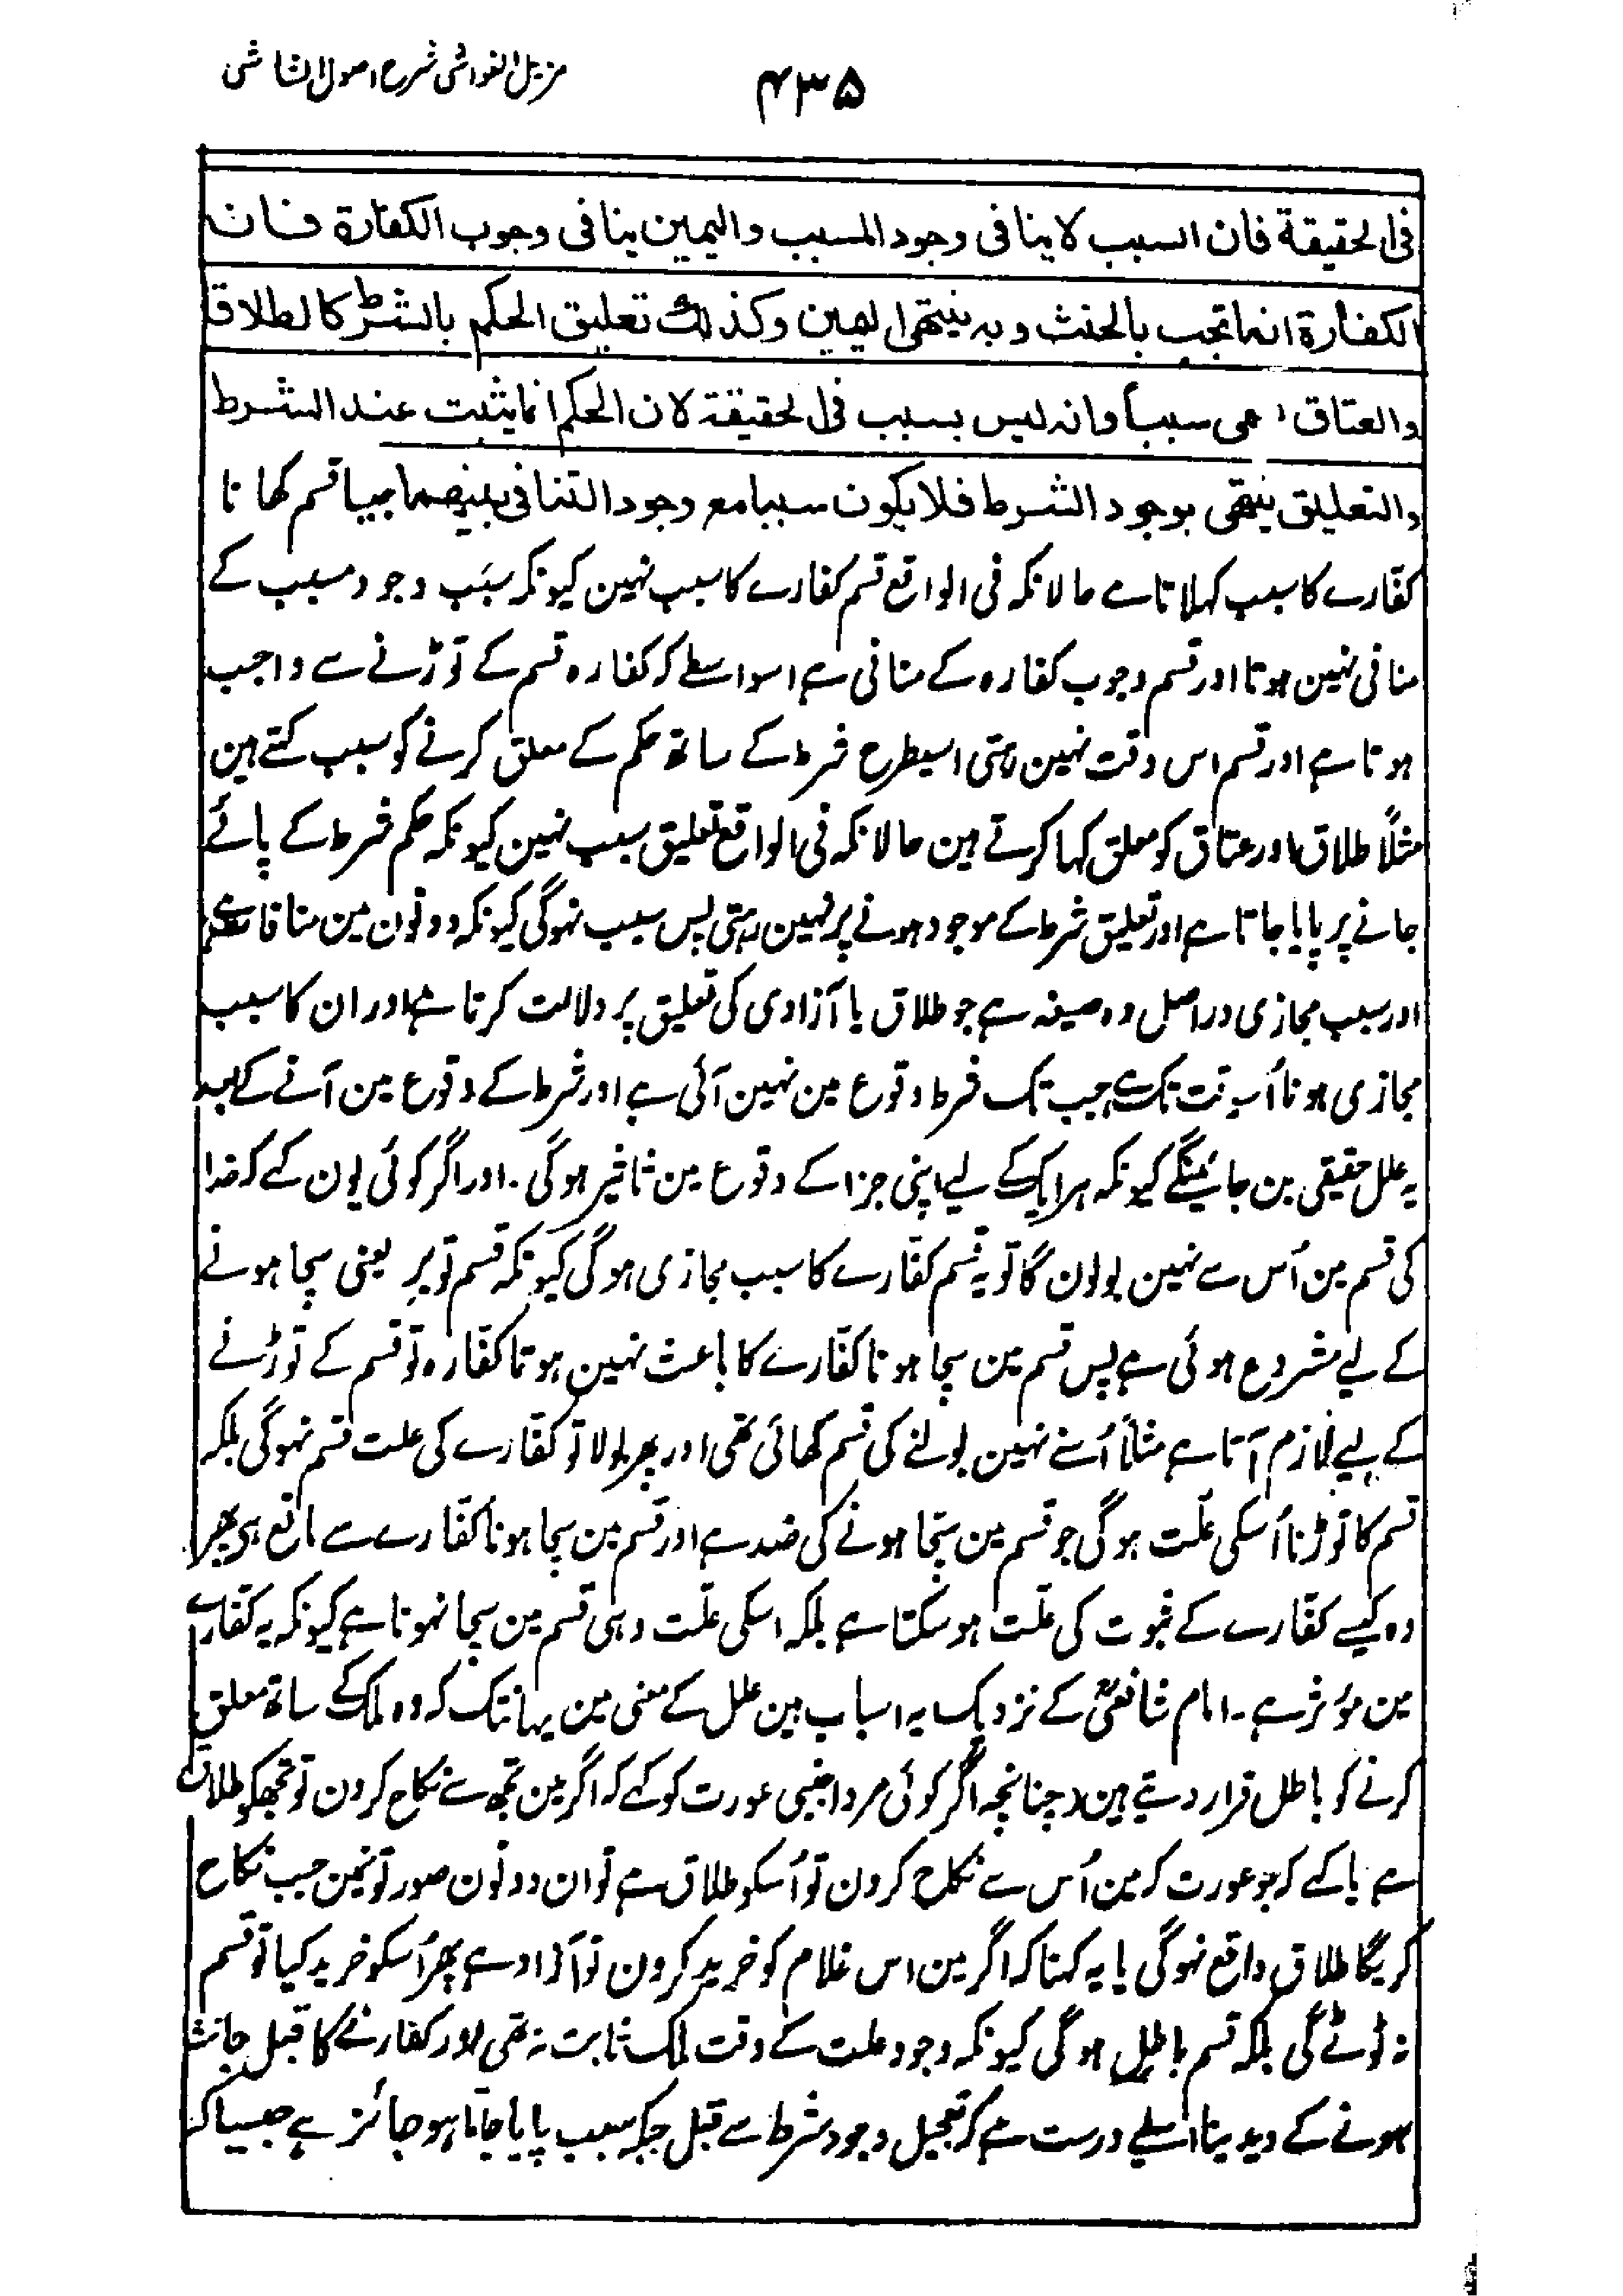 مزیل الغواشی شرح اصول الشاشی
۴۳۵
فی الحقیقة فان السبب لاینافی وجود المسبب والیمین ینافی وجوب الکفارة فان
الکفارة انما تجب بالحنث وبه ینتهی الیمین وکذلک تعلیق الحکم بالشرط کالطلاق
والعتاق یسمی سببا وانه لیس بسبب فی الحقیقة لان الحکم انما یثبت عند الشرط
والتعلیق ینتهی بوجود الشرط فلا یکون سببا مع وجود التنافی بینهما جیسا قسم کھانا
کفّارے کا سبب کہلاتا ہے حالانکہ فی الواقع قسم کفارے کا سبب نہین کیونکہ سبَب وجود مسبب کے
منافی نہین ہوتا اور قسم وجوب کفارہ کے منافی ہے اسواسطے کہ کفارہ قسم کے توڑنے سے واجب
ہوتا ہے اور قسم اس وقت نہین رہتی اسیطرح شرط کے ساتھ حکم کے معلق کرنے کو سبب کہتے ہین
مثلاً طلاق اور عتاق کو معلق کہا کرتے ہین حالانکہ فی الواقع تعلیق سبب نہین کیونکہ حکم شرط کے پائے
جانے پر پایا جاتا ہے اور تعلیق شرط کے موجود ہونے پر نہین رہتی پس سبب نہوگی کیونکہ دونون مین منافات ہے
اور سبب مجازی دراصل وہ صیغہ ہے جو طلاق یا آزادی کی تعلیق پر دلالت کرتا ہے اور ان کا سبب
مجازی ہونا اُسوقت تک ہے جب تک شرط وقوع مین نہین آئی ہے اور شرط کے وقوع مین آنے کے بعد
یہ علل حقیقی بن جائینگے کیونکہ ہر ایک کے لیے اپنی جزا کے وقوع مین تاثیر ہوگی ۔ اور اگر کوئی یون کہے کہ خدا
کی قسم مین اُس سے نہین بولون گا تو یہ قسم کفّارے کا سبب مجازی ہوگی کیونکہ قسم تو بِر یعنی سچا ہونے
کے لیے مشروع ہوئی ہے پس قسم مین سچا ہونا کفّارے کا باعث نہین ہوتا کفّارہ تو قسم کے توڑنے
کے لیے لازم آتا ہے مثلاً اُسنے نہین بولنے کی قسم کھائی تھی اور پھر بولا تو کفّارے کی علت قسم نہوگی بلکہ
قسم کا توڑنا اُسکی علّت ہوگی جو قسم مین سچّا ہونے کی ضد ہے اور قسم مین سچا ہونا کفّارے سے مانع ہی پھر
وہ کیسے کفّارے کے ثبوت کی علّت ہوسکتا ہے بلکہ اسکی علّت وہی قسم مین سچا نہونا ہے کیونکہ یہ کفارے
مین مؤثر ہے ۔ امام شافعیؒ کے نزدیک یہ اسباب ہین علل کے معنی مین یہانتک کہ وہ ملک کے ساتھ معلق
کرنے کو باطل قرار دیتے ہین (چنانچہ اگر کوئی مرد اجنبی عورت کو کہے کہ اگر مین تجھ سے نکاح کرون تو تجھکو طلاق
ہے یا کہے کہ جو عورت کہ مین اُس سے نکاح کرون تو اُسکو طلاق ہے تو ان دونون صورتونمین جب نکاح
کریگا طلاق واقع نہوگی یا یہ کہتا کہ اگر مین اس غلام کو خرید کرون تو آزاد ہے پھر اُسکو خرید کیا تو قسم
نہ ٹوٹے گی بلکہ قسم باطل ہوگی کیونکہ وجود علت کے وقت ملک ثابت نہ تھی اور کفارے کا قبل حانث
ہونے کے دیدینا اسلیے درست ہے کہ تعجیل وجود شرط سے قبل جبکہ سبب پایا جاتا ہو جائز ہے جیسا کہ